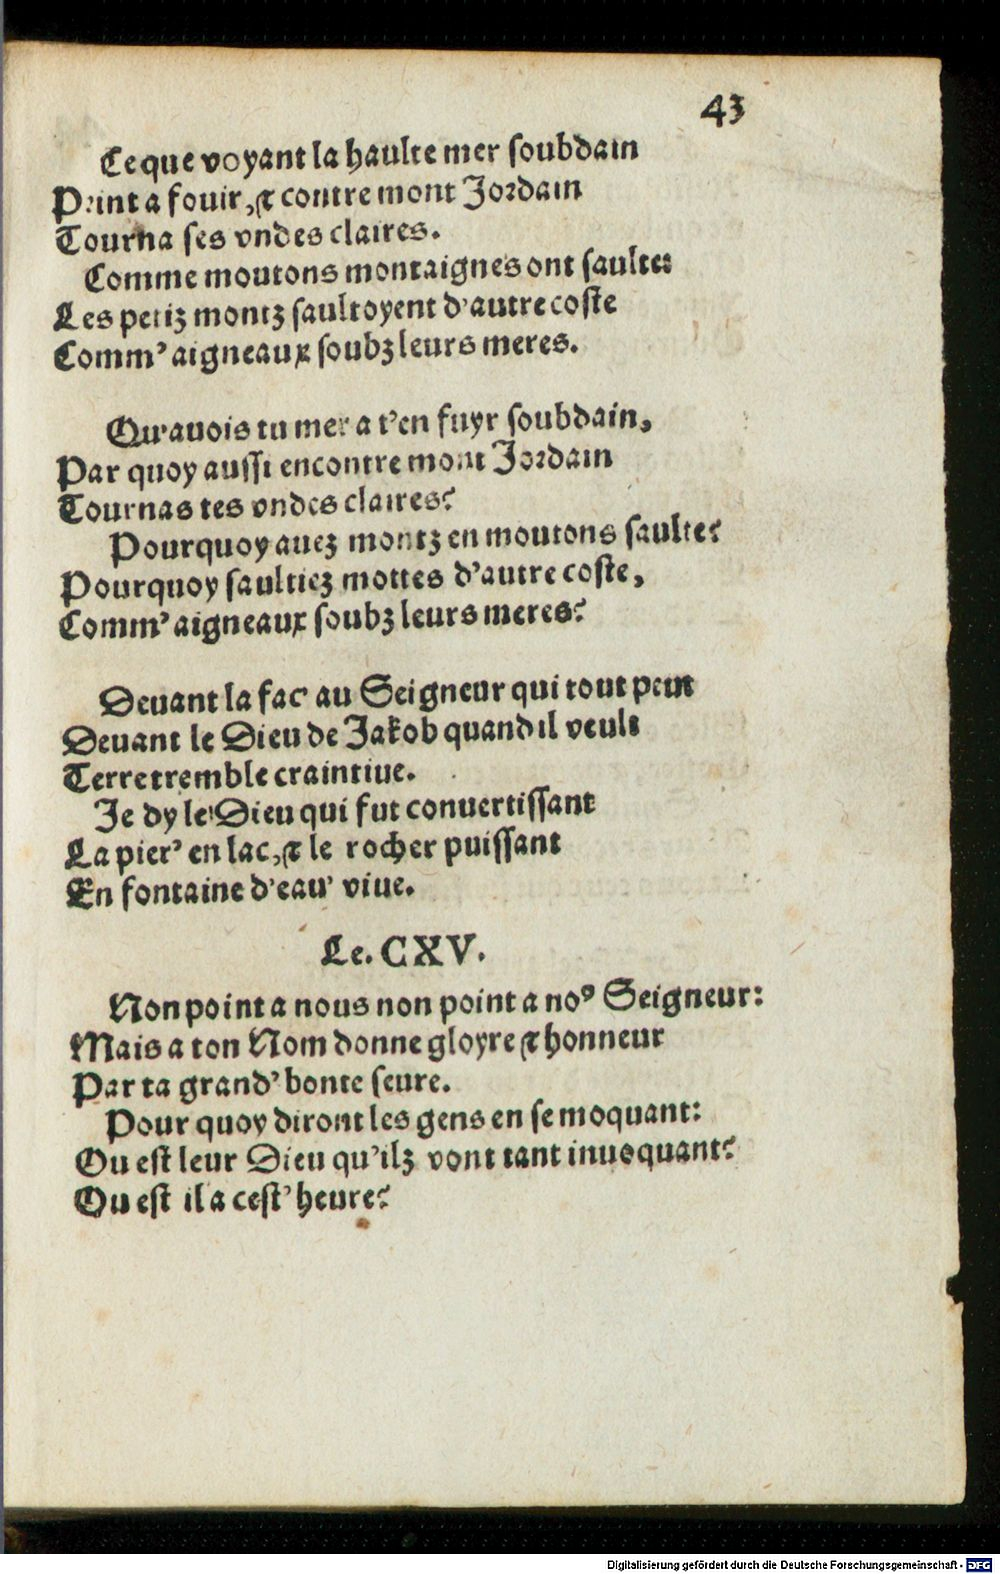 43
Ce que voyant la haulte mer soubdain
Print a fouir, & contre mont Jordain
Tourna ses vndes claires.
Comme moutons montaignes ont saulte:
Les petiz montz saultoyent d'autre coste
Comm' aigneaux soubz leurs meres.
Qu'auois tu mer a t'en fuyr soubdain,
Par quoy aussi encontre mont Jordain
Tournas tes vndes claires?
Pourquoy auez montz en moutons saulte?
Pourquoy saultiez mottes d'autre coste,
Comm' aigneaux soubz leurs meres?
Deuant la fac' au Seigneur qui tout peut
Deuant le Dieu de Jakob quand il veult
Terre tremble craintiue.
Je dy le Dieu qui fut conuertissant
La pier' en lac, & le rocher puissant
En fontaine d'eau' viue.
Le. CXV.
Non point a nous non point a noꝰ Seigneur:
Mais a ton Nom donne gloyre & honneur
Par ta grand' bonte seure.
Pour quoy diront les gens en se moquant:
Ou est leur Dieu qu'ilz vont tant inuoquant?
Ou est il a cest' heure?
Digitalisierung gefördert durch die Deutsche Forschungsgemeinschaft - DFG